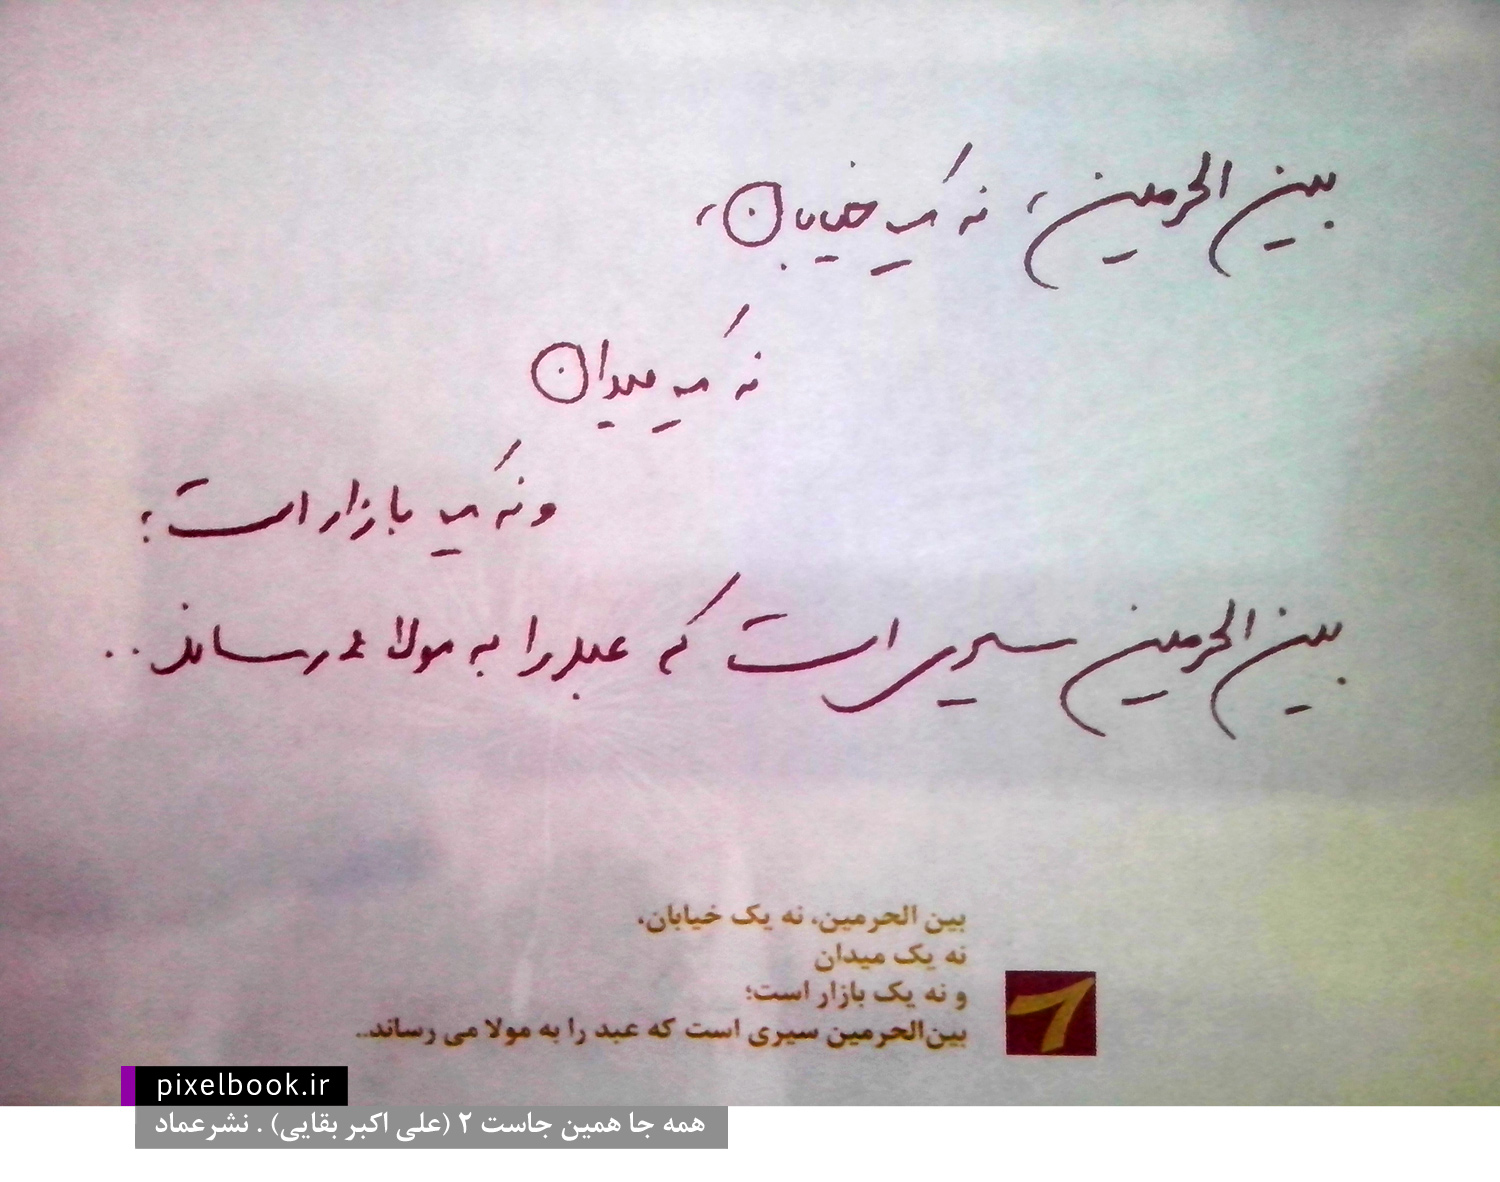 بین الحرمین، نه یک خیابان،
نه یک میدان
و نه یک بازار است؛
بین الحرمین سیری است که عبد را به مولا می رساند..
بین الحرمین، نه یک خیابان،
نه یک میدان
و نه یک بازار است؛
بین‌الحرمین سیری است که عبد را به مولا می رساند..
pixelbook.ir
همه جا همین جاست ۲ (علی اکبر بقایی) . نشرعماد